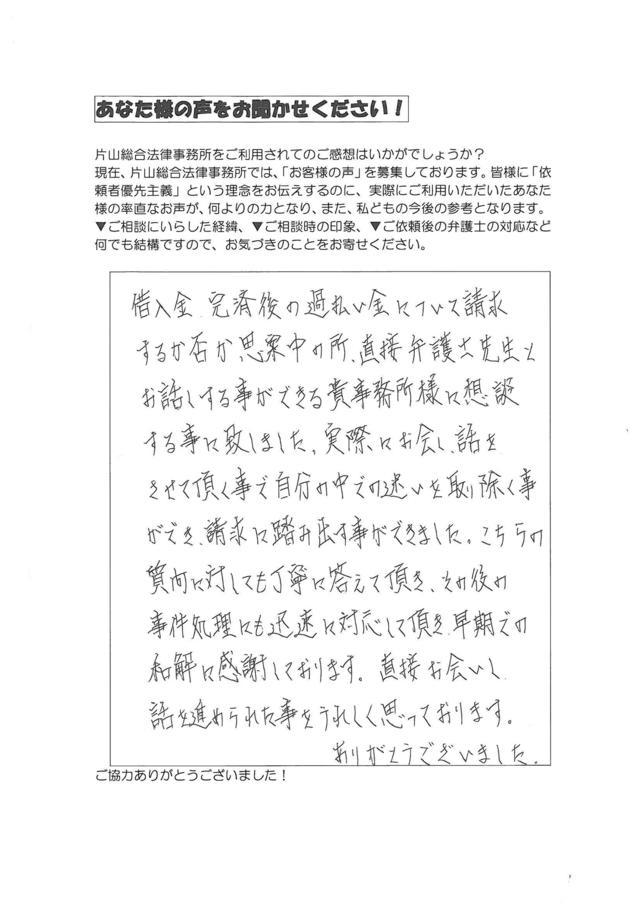 あなた様の声をお聞かせください！
片山総合法律事務所をご利用されてのご感想はいかがでしょうか？
現在、片山総合法律事務所では、「お客様の声」を募集しております。皆様に「依
頼者優先主義」という理念をお伝えするのに、実際にご利用いただいたあなた
様の率直なお声が、何よりの力となり、また、私どもの今後の参考となります。
▼ご相談にいらした経緯、▼ご相談時の印象、▼ご依頼後の弁護士の対応など
何でも結構ですので、お気づきのことをお寄せください。
借入金 完済後の過払い金について請求
するか否か思案中の所、直接弁護士先生と
お話しする事ができる貴事務所様に想談
する事に致しました。実際にお会いし、話を
させて頂く事で自分の中での迷いを取り除く事
ができ、請求に踏み出す事ができました。こちらの
質問に対しても丁寧に答えて頂き、その後の
事件処理にも迅速に対応して頂き、早期での
和解に感謝しております。直接お会いし
話を進められた事をうれしく思っております。
ありがとうございました。
ご協力ありがとうございました！